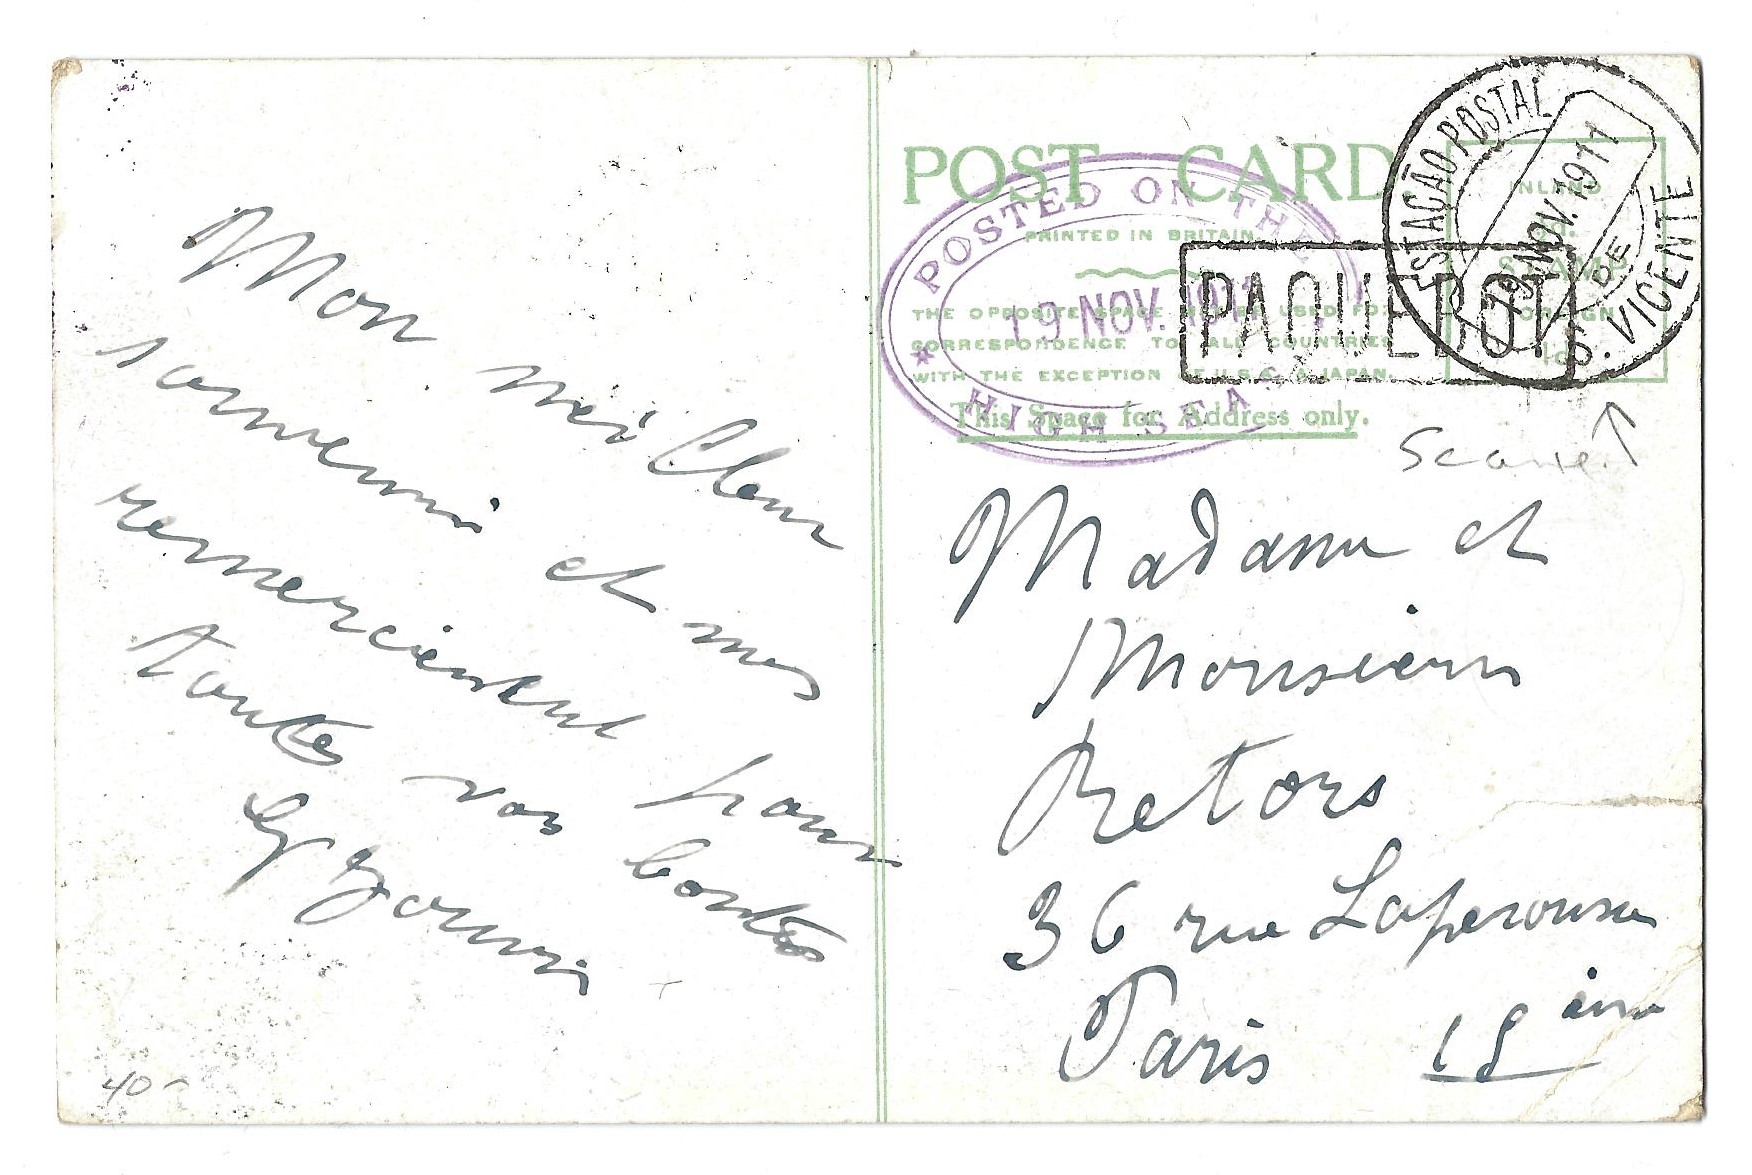 Mon meilleur
souvenir et mes
remerciement pour
toutes vos bontés
POST CARD.
PRINTED IN BRITAIN
THE OPPOSITE SPACE MAY BE USED FOR
CORRESPONDENCE TO ALL COUNTRIES
WITH THE EXCEPTION OF U.S.A. & JAPAN.
This Space for Address only.
POSTED ON THE
19 NOV. 1911
★ HIGH SEA
PAQUEBOT
ESTAÇÃO POSTAL
19 NOV. 1911
DE
S. VICENTE
INLAND
½d.
STAMP
FOREIGN
1d.
Scarce
Madame et
Monsieur
Retors
36 rue Laperouse
Paris
40-